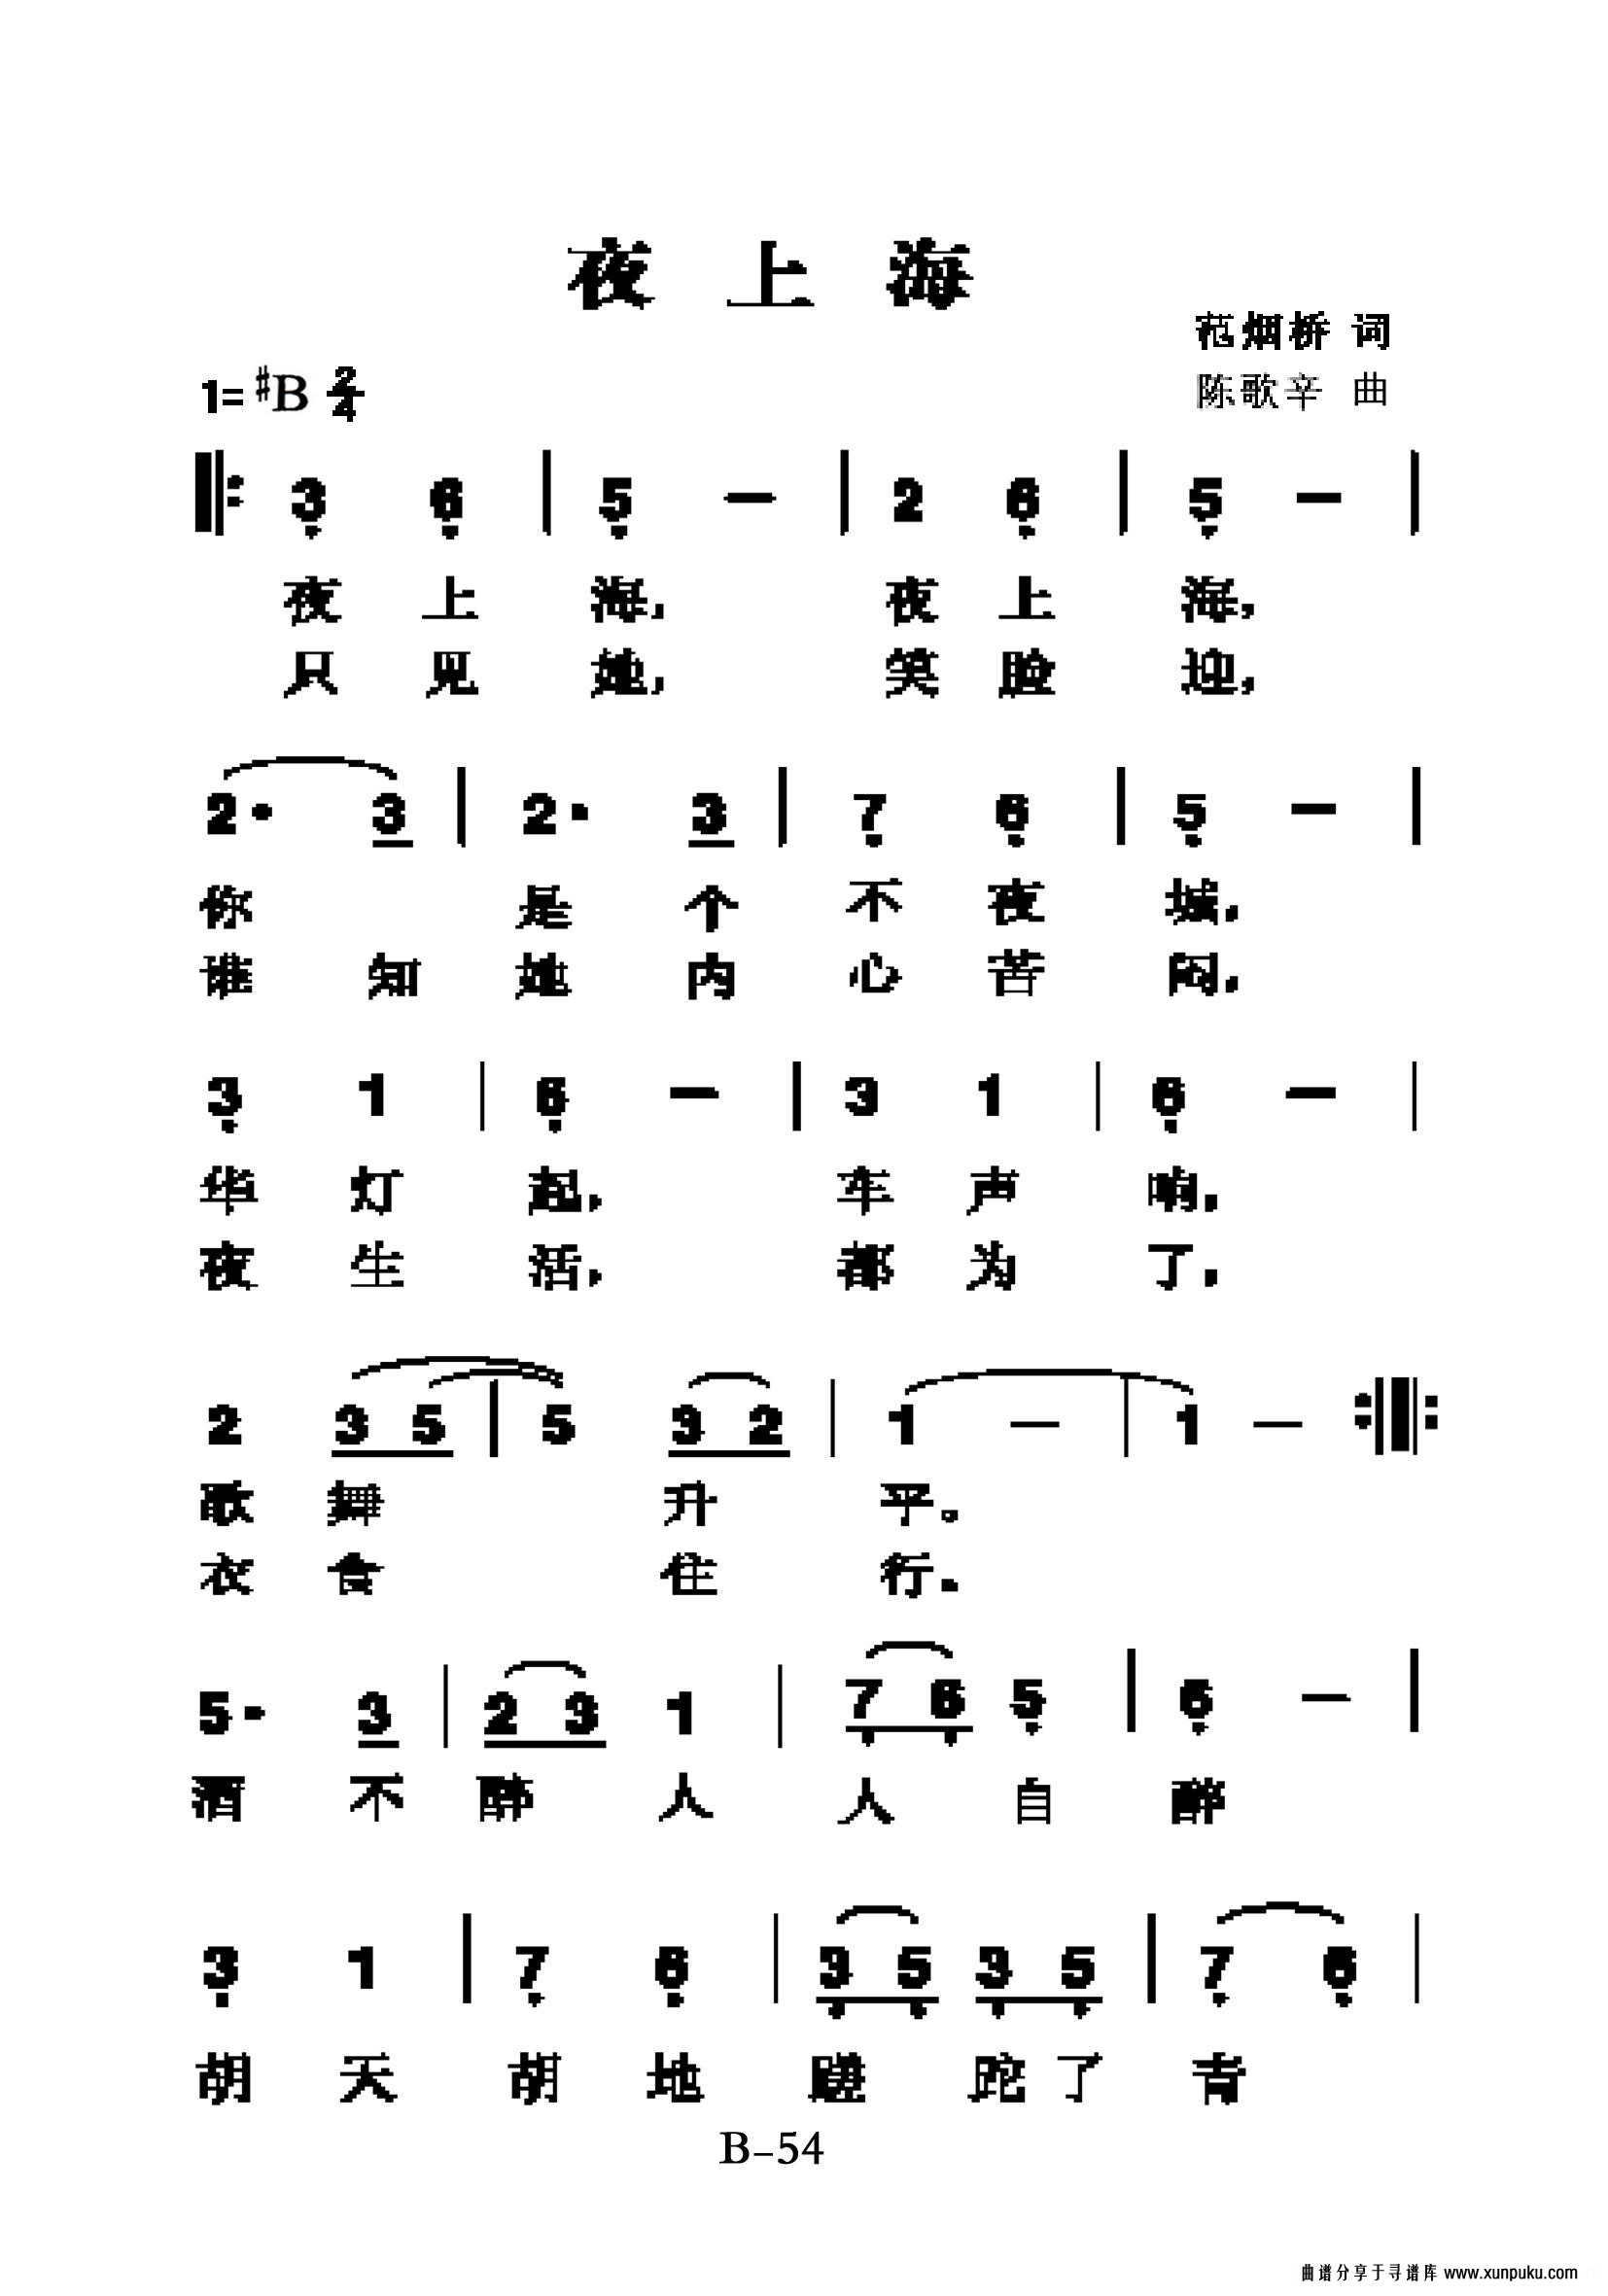 夜 上 海
范烟桥 词
1= #B 2/4
陈歌辛 曲
3 6 | 5 — | 2 6 | 5 — |
夜 上 海, 夜 上 海,
只 见 她, 笑 脸 迎,
2· 3 | 2· 3 | 7 6 | 5 — |
你 是 个 不 夜 城,
谁 知 她 内 心 苦 闷,
3 1 | 6 — | 3 1 | 6 — |
华 灯 起, 车 声 响,
夜 生 活, 都 为 了,
2 3 5 | 5 3 2 | 1 — | 1 — :‖:
歌 舞 升 平。
衣 食 住 行.
5· 3 | 2 3 1 | 7 6 5 | 6 — |
酒 不 醉 人 人 自 醉
3 1 | 7 6 | 3 5 3 5 | 7 6 |
胡 天 胡 地 蹉 跎 了 青
B-54
曲谱分享于寻谱库 www.xunpuku.com